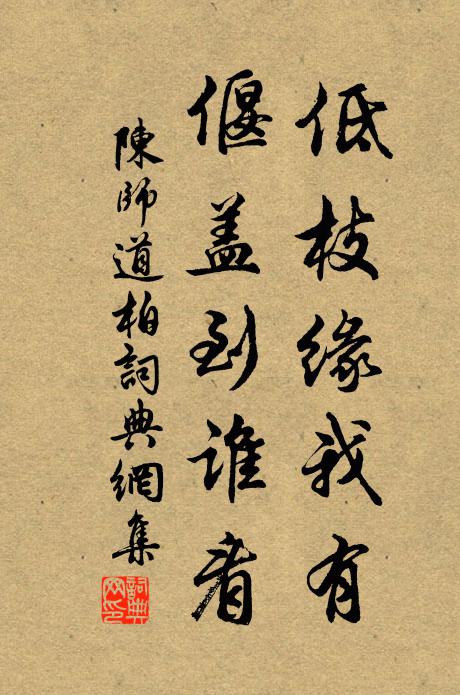 低枝緣我有
偃盖到誰看
陳師道柏詞典網集
詞典网印